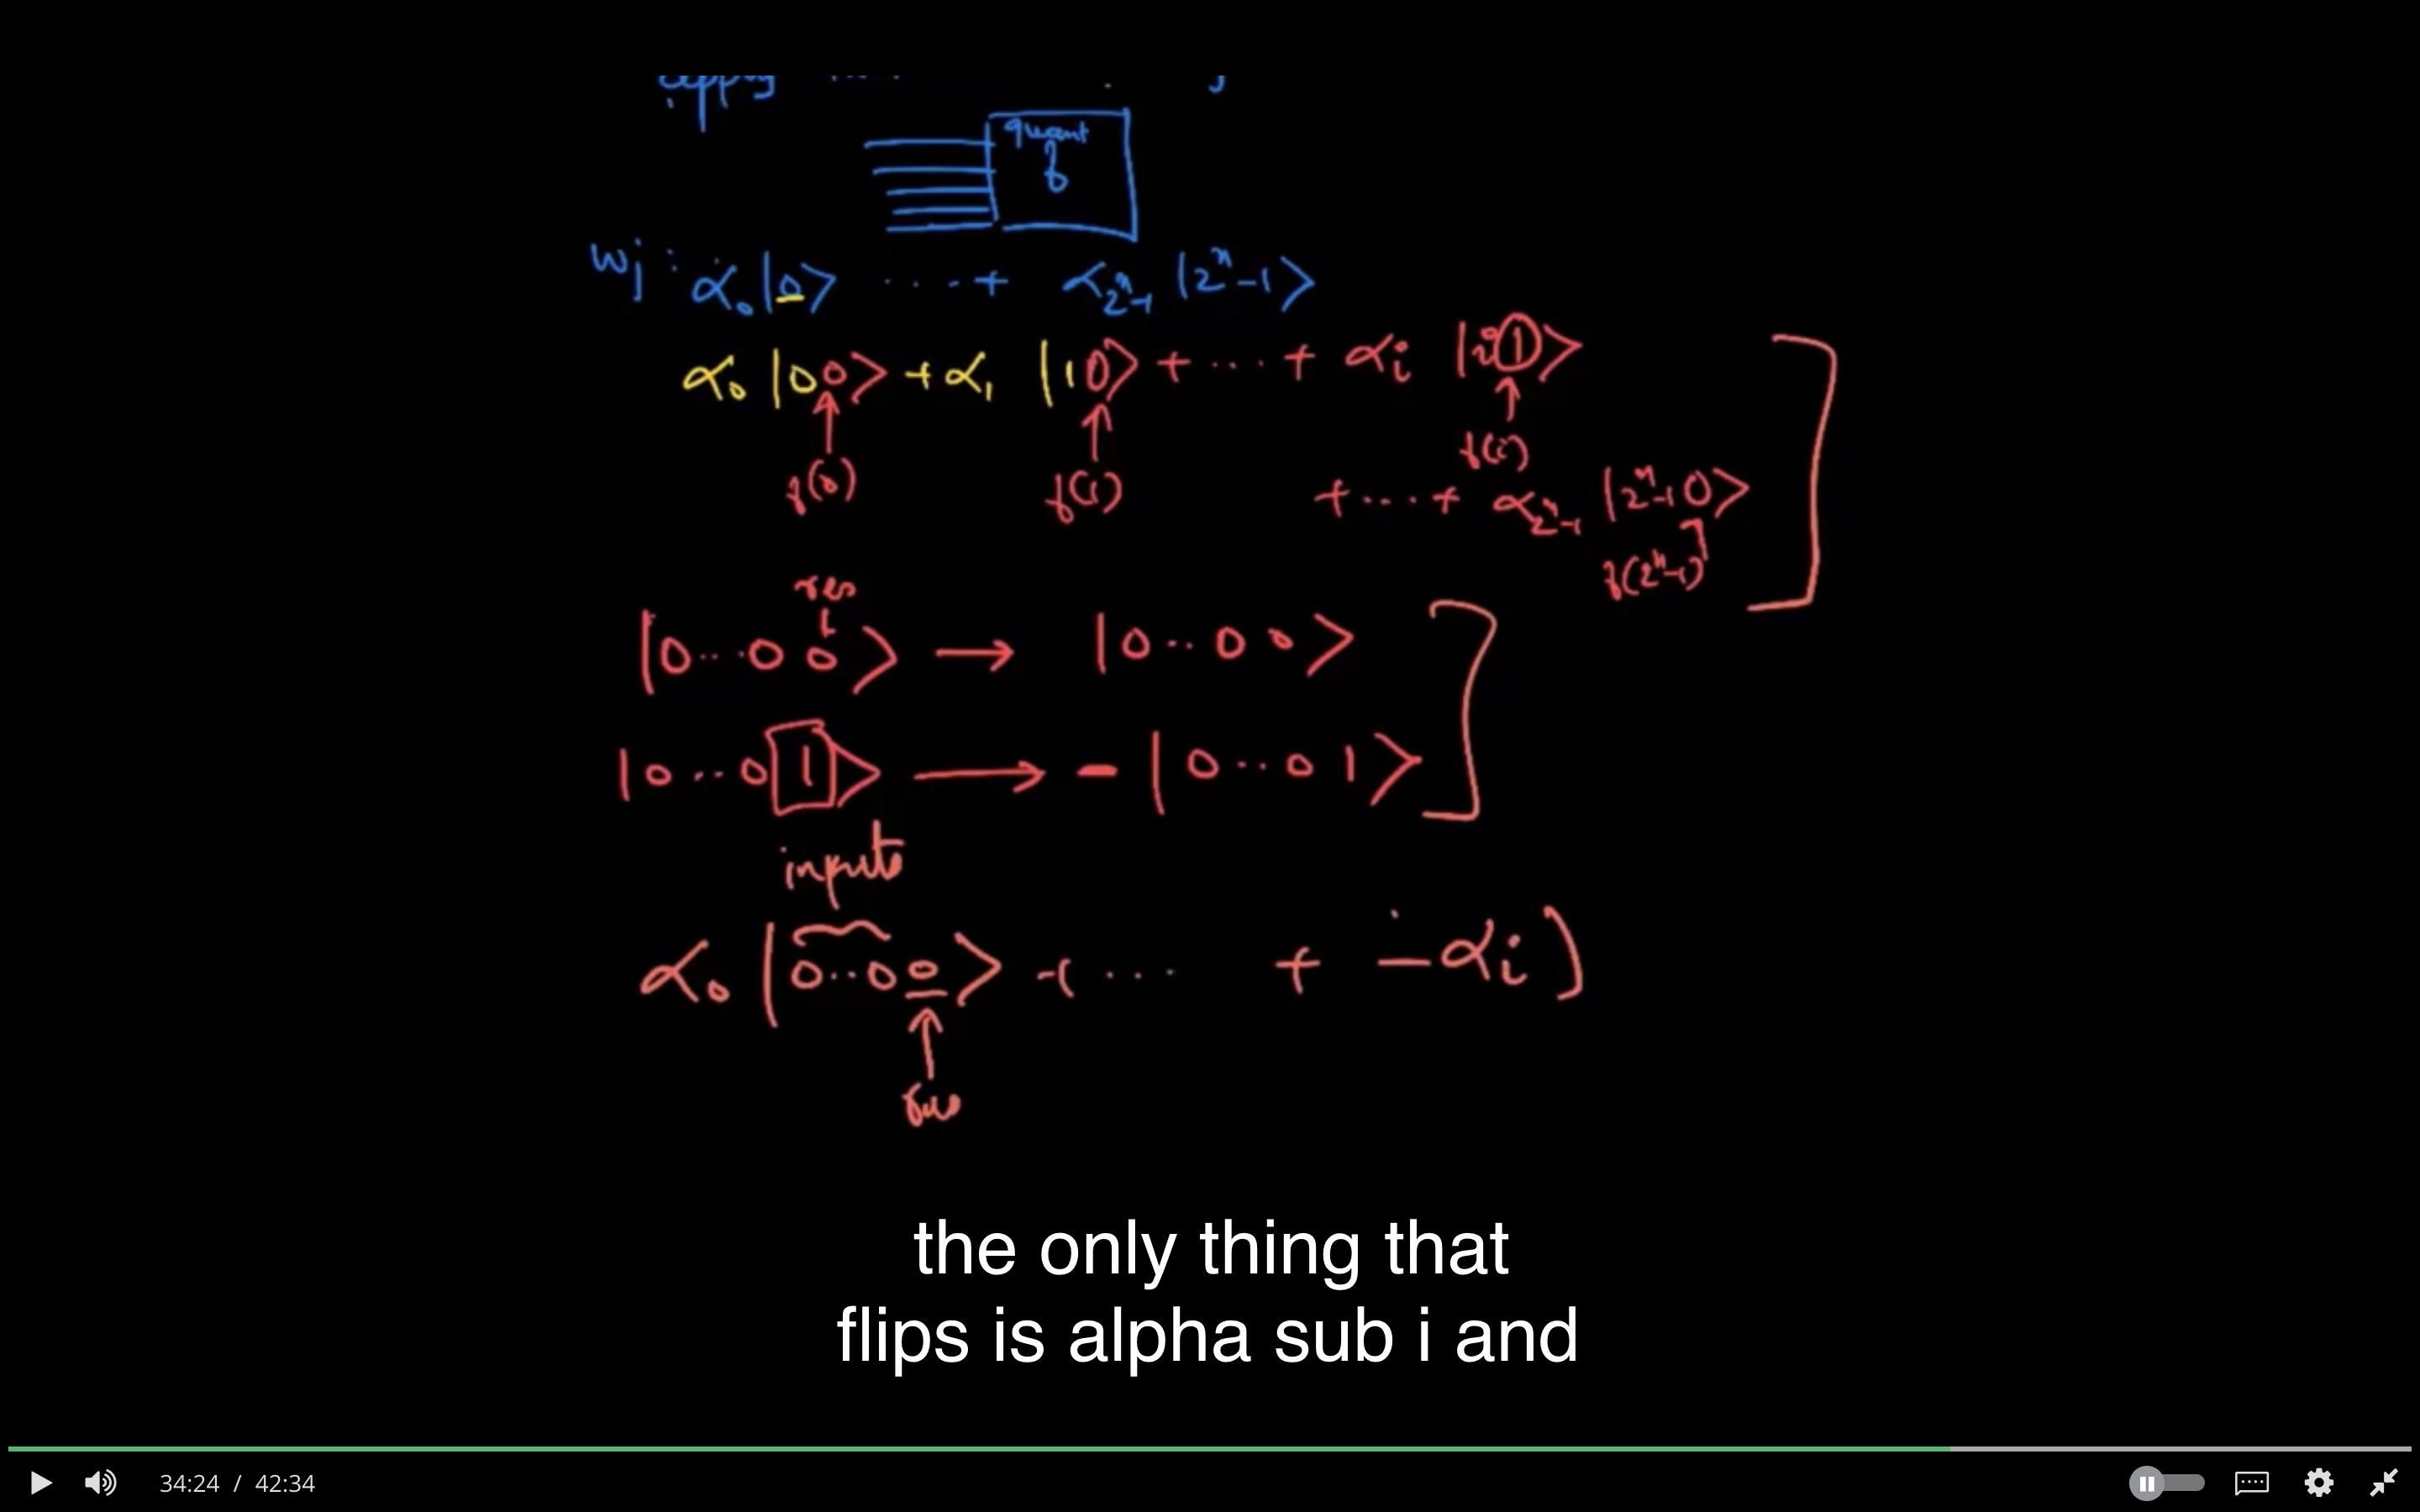 quant
f
wj : α₀|0⟩ ....+ α₂ⁿ₋₁ |2ⁿ-1⟩
α₀|00⟩ + α₁ |10⟩ + ... + αᵢ |i1⟩
f(0) f(1) f(i)
+ ... + α₂ⁿ₋₁ |2ⁿ-1 0⟩
f(2ⁿ-1)
res
|0...0 0⟩ → |0..0 0⟩
|0...0 1⟩ → - |0..0 1⟩
inputs
α₀ |0..0 0⟩ + ... + -αᵢ
the only thing that
flips is alpha sub i and
34:24 / 42:34